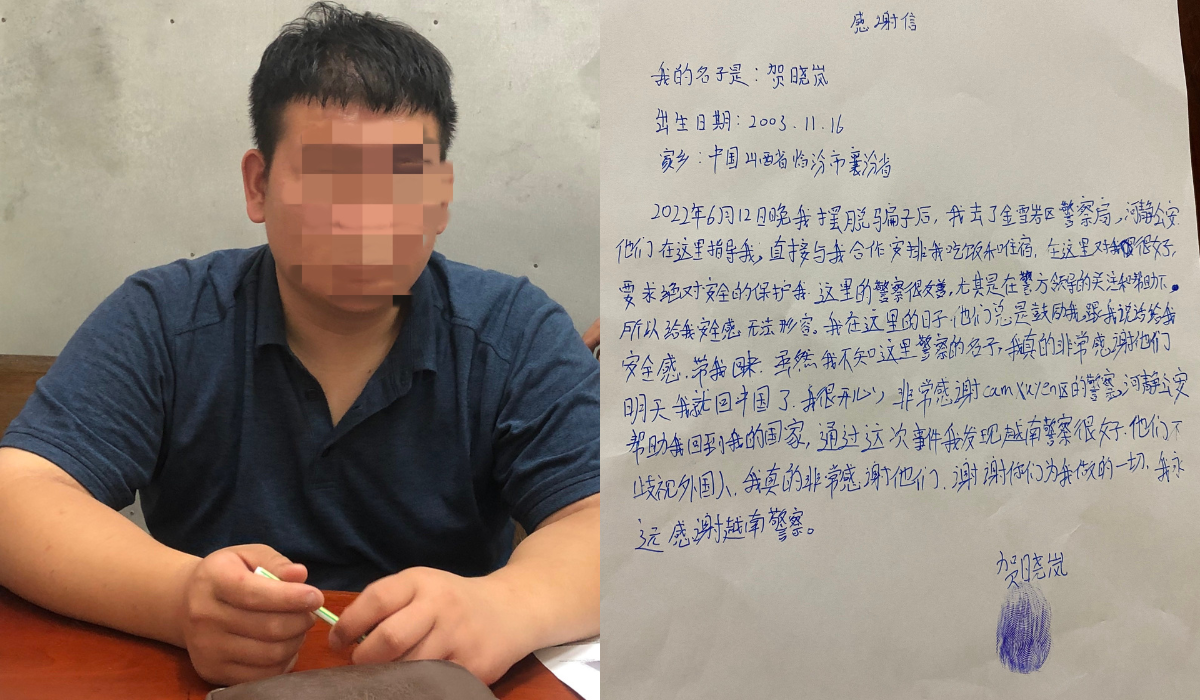 感谢信
我的名子是：贺晓岚
出生日期：2003.11.16
家乡：中国山西省临汾市襄汾省
2022年6月12日晚我摆脱骗子后，我去了金雪岩区警察局，河静公安
他们在这里指导我，直接与我合作安排我吃饭和住宿，在这里对我很好，
要求绝对安全的保护我.这里的警察很友善，尤其是在警方领导的关注和帮助下.
所以给我安全感无法形容。我在这里的日子，他们总是鼓励我.跟我说话给我
安全感.带我回来.虽然我不知这里警察的名子，我真的非常感谢他们
明天我就回中国了.我很开心，非常感谢cam xuyen区的警察，河静公安
帮助我回到我的国家，通过这次事件我发现越南警察很好.他们不
歧视外国人.我真的非常感谢他们.谢谢你们为我做的一切.我永
远感谢越南警察。
贺晓岚